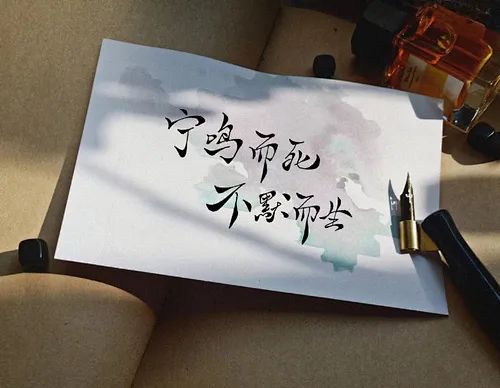 宁鸣而死
不默而生